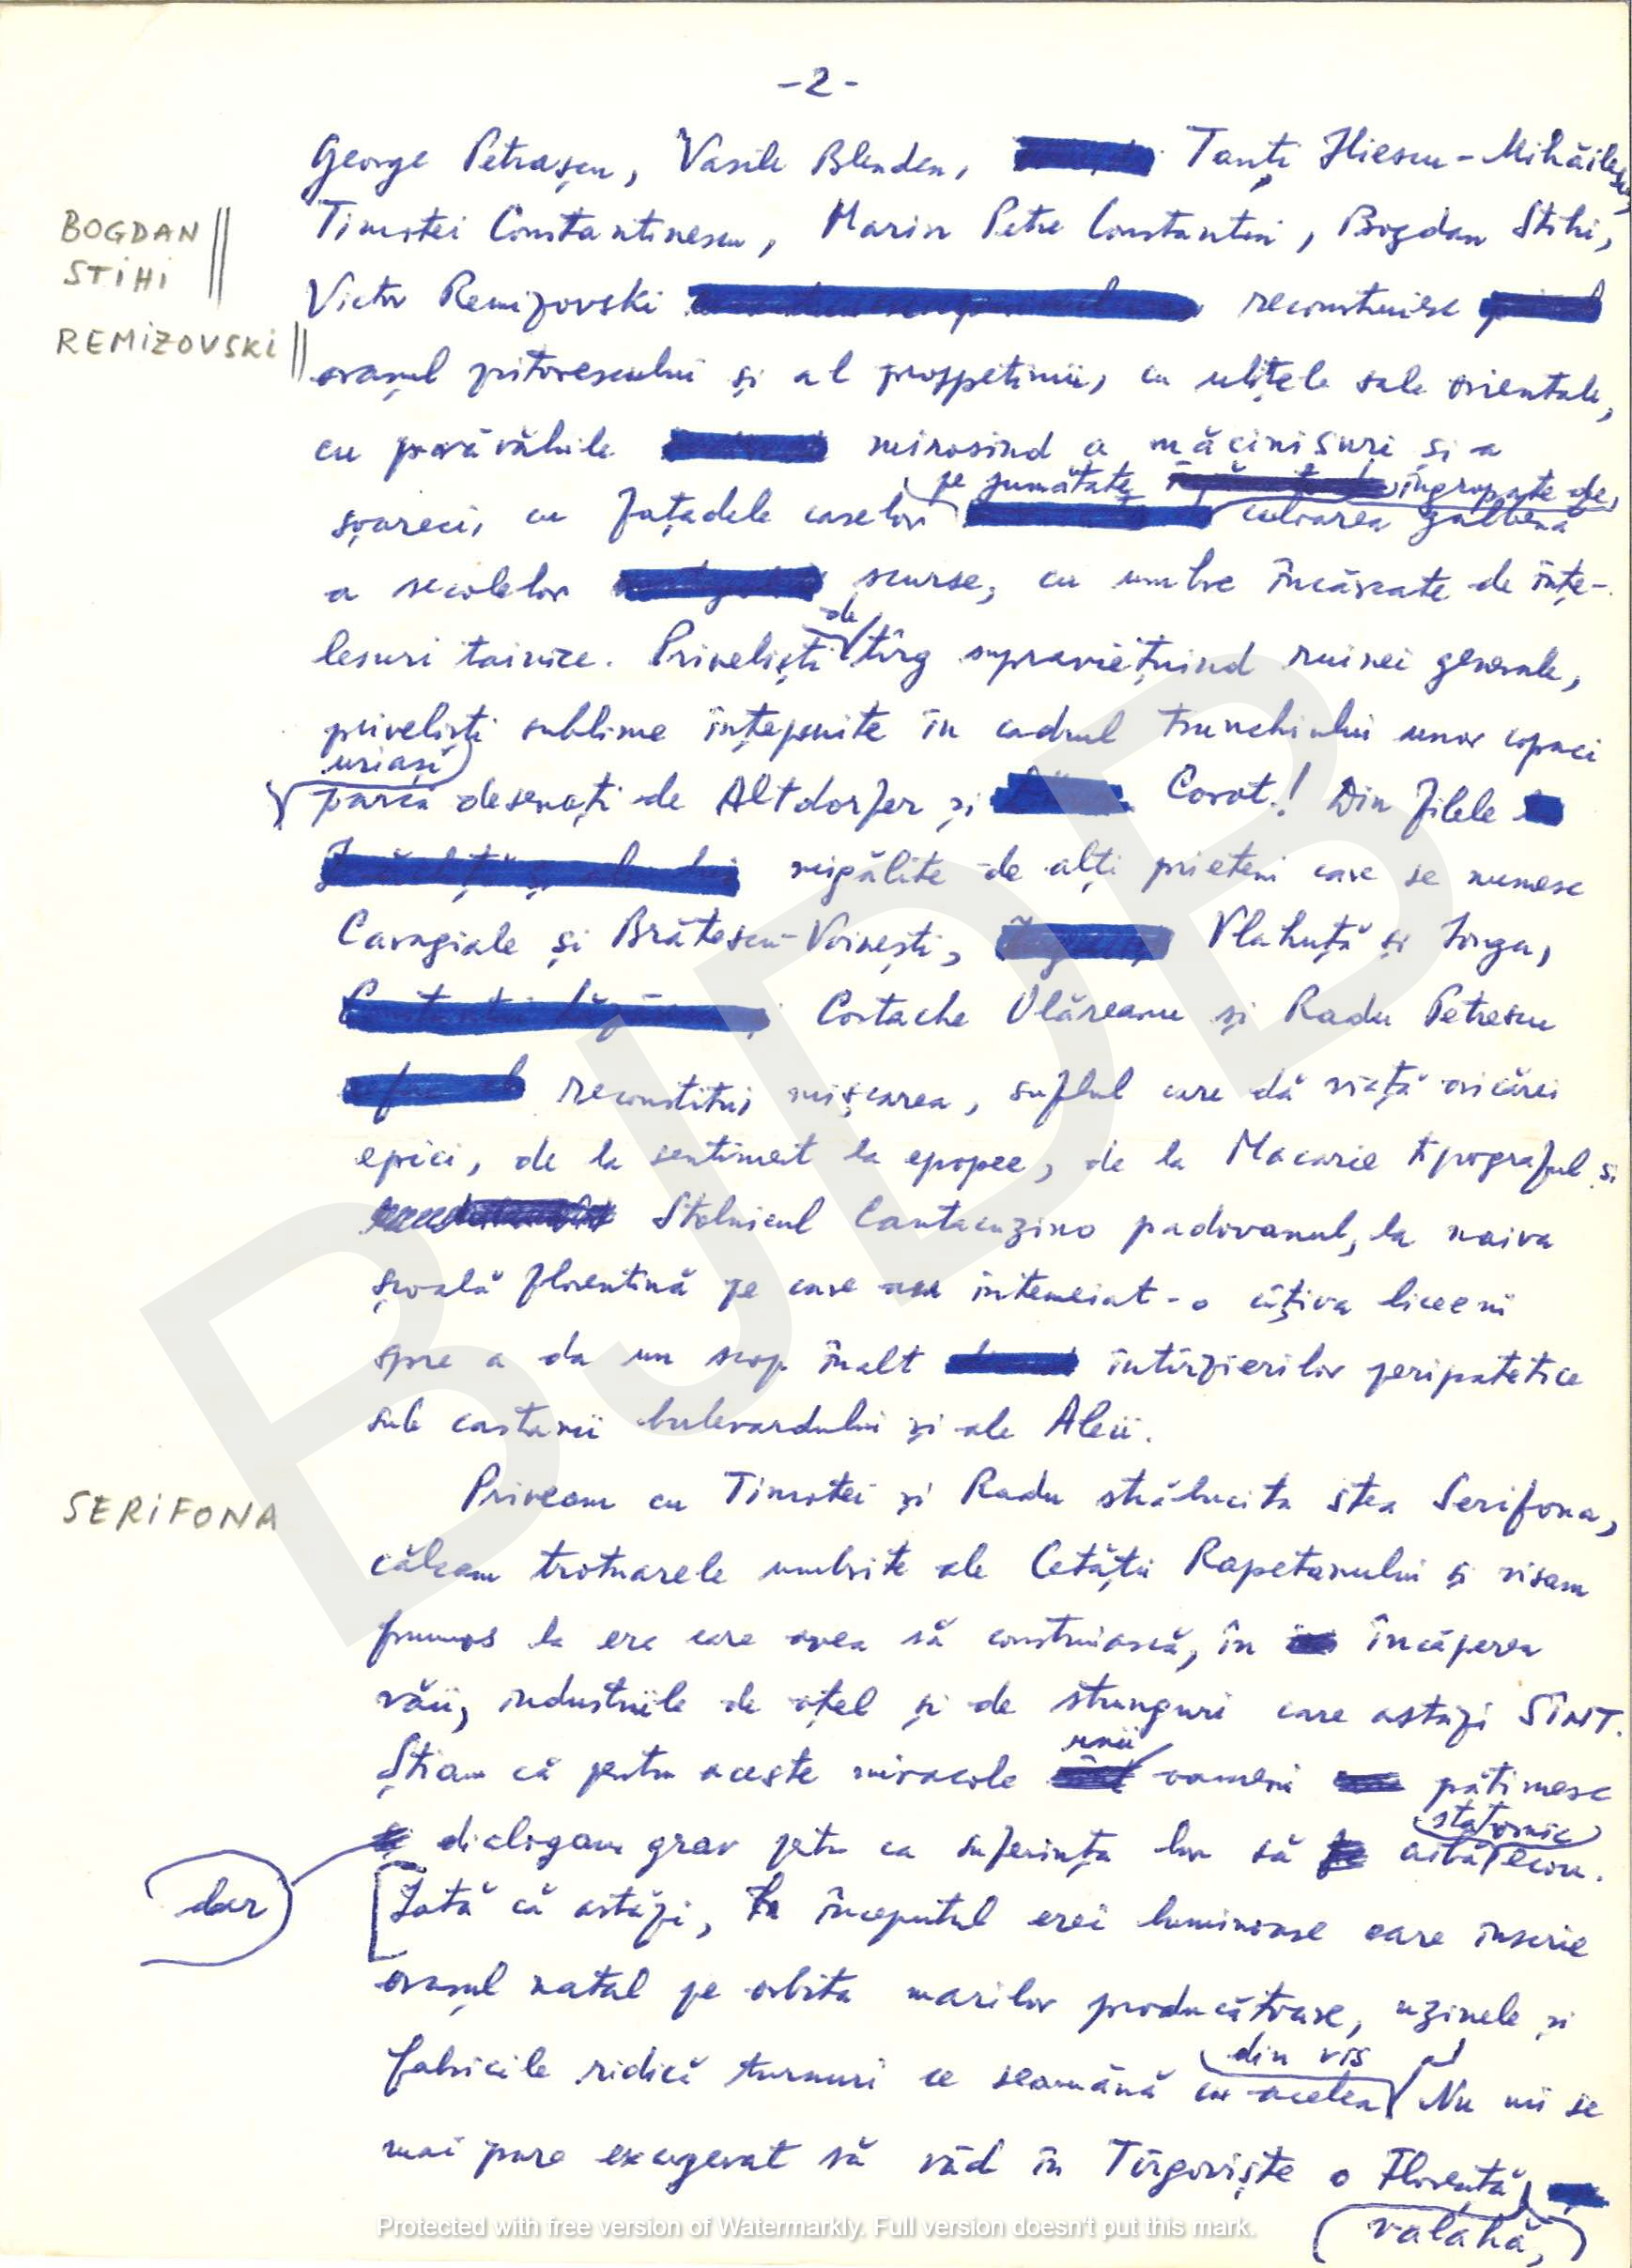 -2-
George Petrașcu, Vasile Blendea, Tanți Iliescu-Mihăilescu,
Timotei Constantinescu, Marin Petre Constantin, Bogdan Stihi,
BOGDAN
STIHI
Victor Remizovski reconstruiesc
REMIZOVSKI
orașul pitorescului și al prospețimii, cu ulițele sale orientale,
cu prăvăliile mirosind a măcinișuri și a
șoareci, cu fațadele caselor pe jumătate îngropate de culoarea galbenă
a secolelor scurse, cu umbre încărcate de înțe-
lesuri tainice. Priveliști de tîrg supraviețuind ruinei generale,
priveliști sublime înțepenite în cadrul trunchiului unor copaci
uriași
parcă desenați de Altdorfer și Corot! Din filele
migălite de alți prieteni care se numesc
Caragiale și Brătescu-Voinești, Vlahuță și Iorga,
Costache Olăreanu și Radu Petrescu
reconstitui mișcarea, suflul care dă viață oricărei
epici, de la sentiment la epopee, de la Macarie tipograful și
Stolnicul Cantacuzino padovanul, la naiva
școală florentină pe care au întemeiat-o cîțiva liceeni
spre a da un scop înalt întîrzierilor peripatetice
sub castanii bulevardului și ale Aleii.
Priveam cu Timotei și Radu strălucita stea Serifona,
SERIFONA
călcam trotuarele umbrite ale Cetății Rapetanului și visam
frumos la era care avea să construiască, în încăperea
văii, industriile de oțel și de strunguri care astăzi SÎNT.
Știam că pentru aceste miracole unii oameni pătimesc
dar dialogam grav pentru ca suferința lor să aibă statornic ecou.
Iată că astăzi, la începutul erei luminoase care înscrie
orașul natal pe orbita marilor producătoare, uzinele și
fabricile ridică turnuri ce seamănă cu acelea din vis. Nu mi se
mai pare exagerat să văd în Tîrgoviște o Florență
valahă,
BJDB
Protected with free version of Watermarkly. Full version doesn't put this mark.